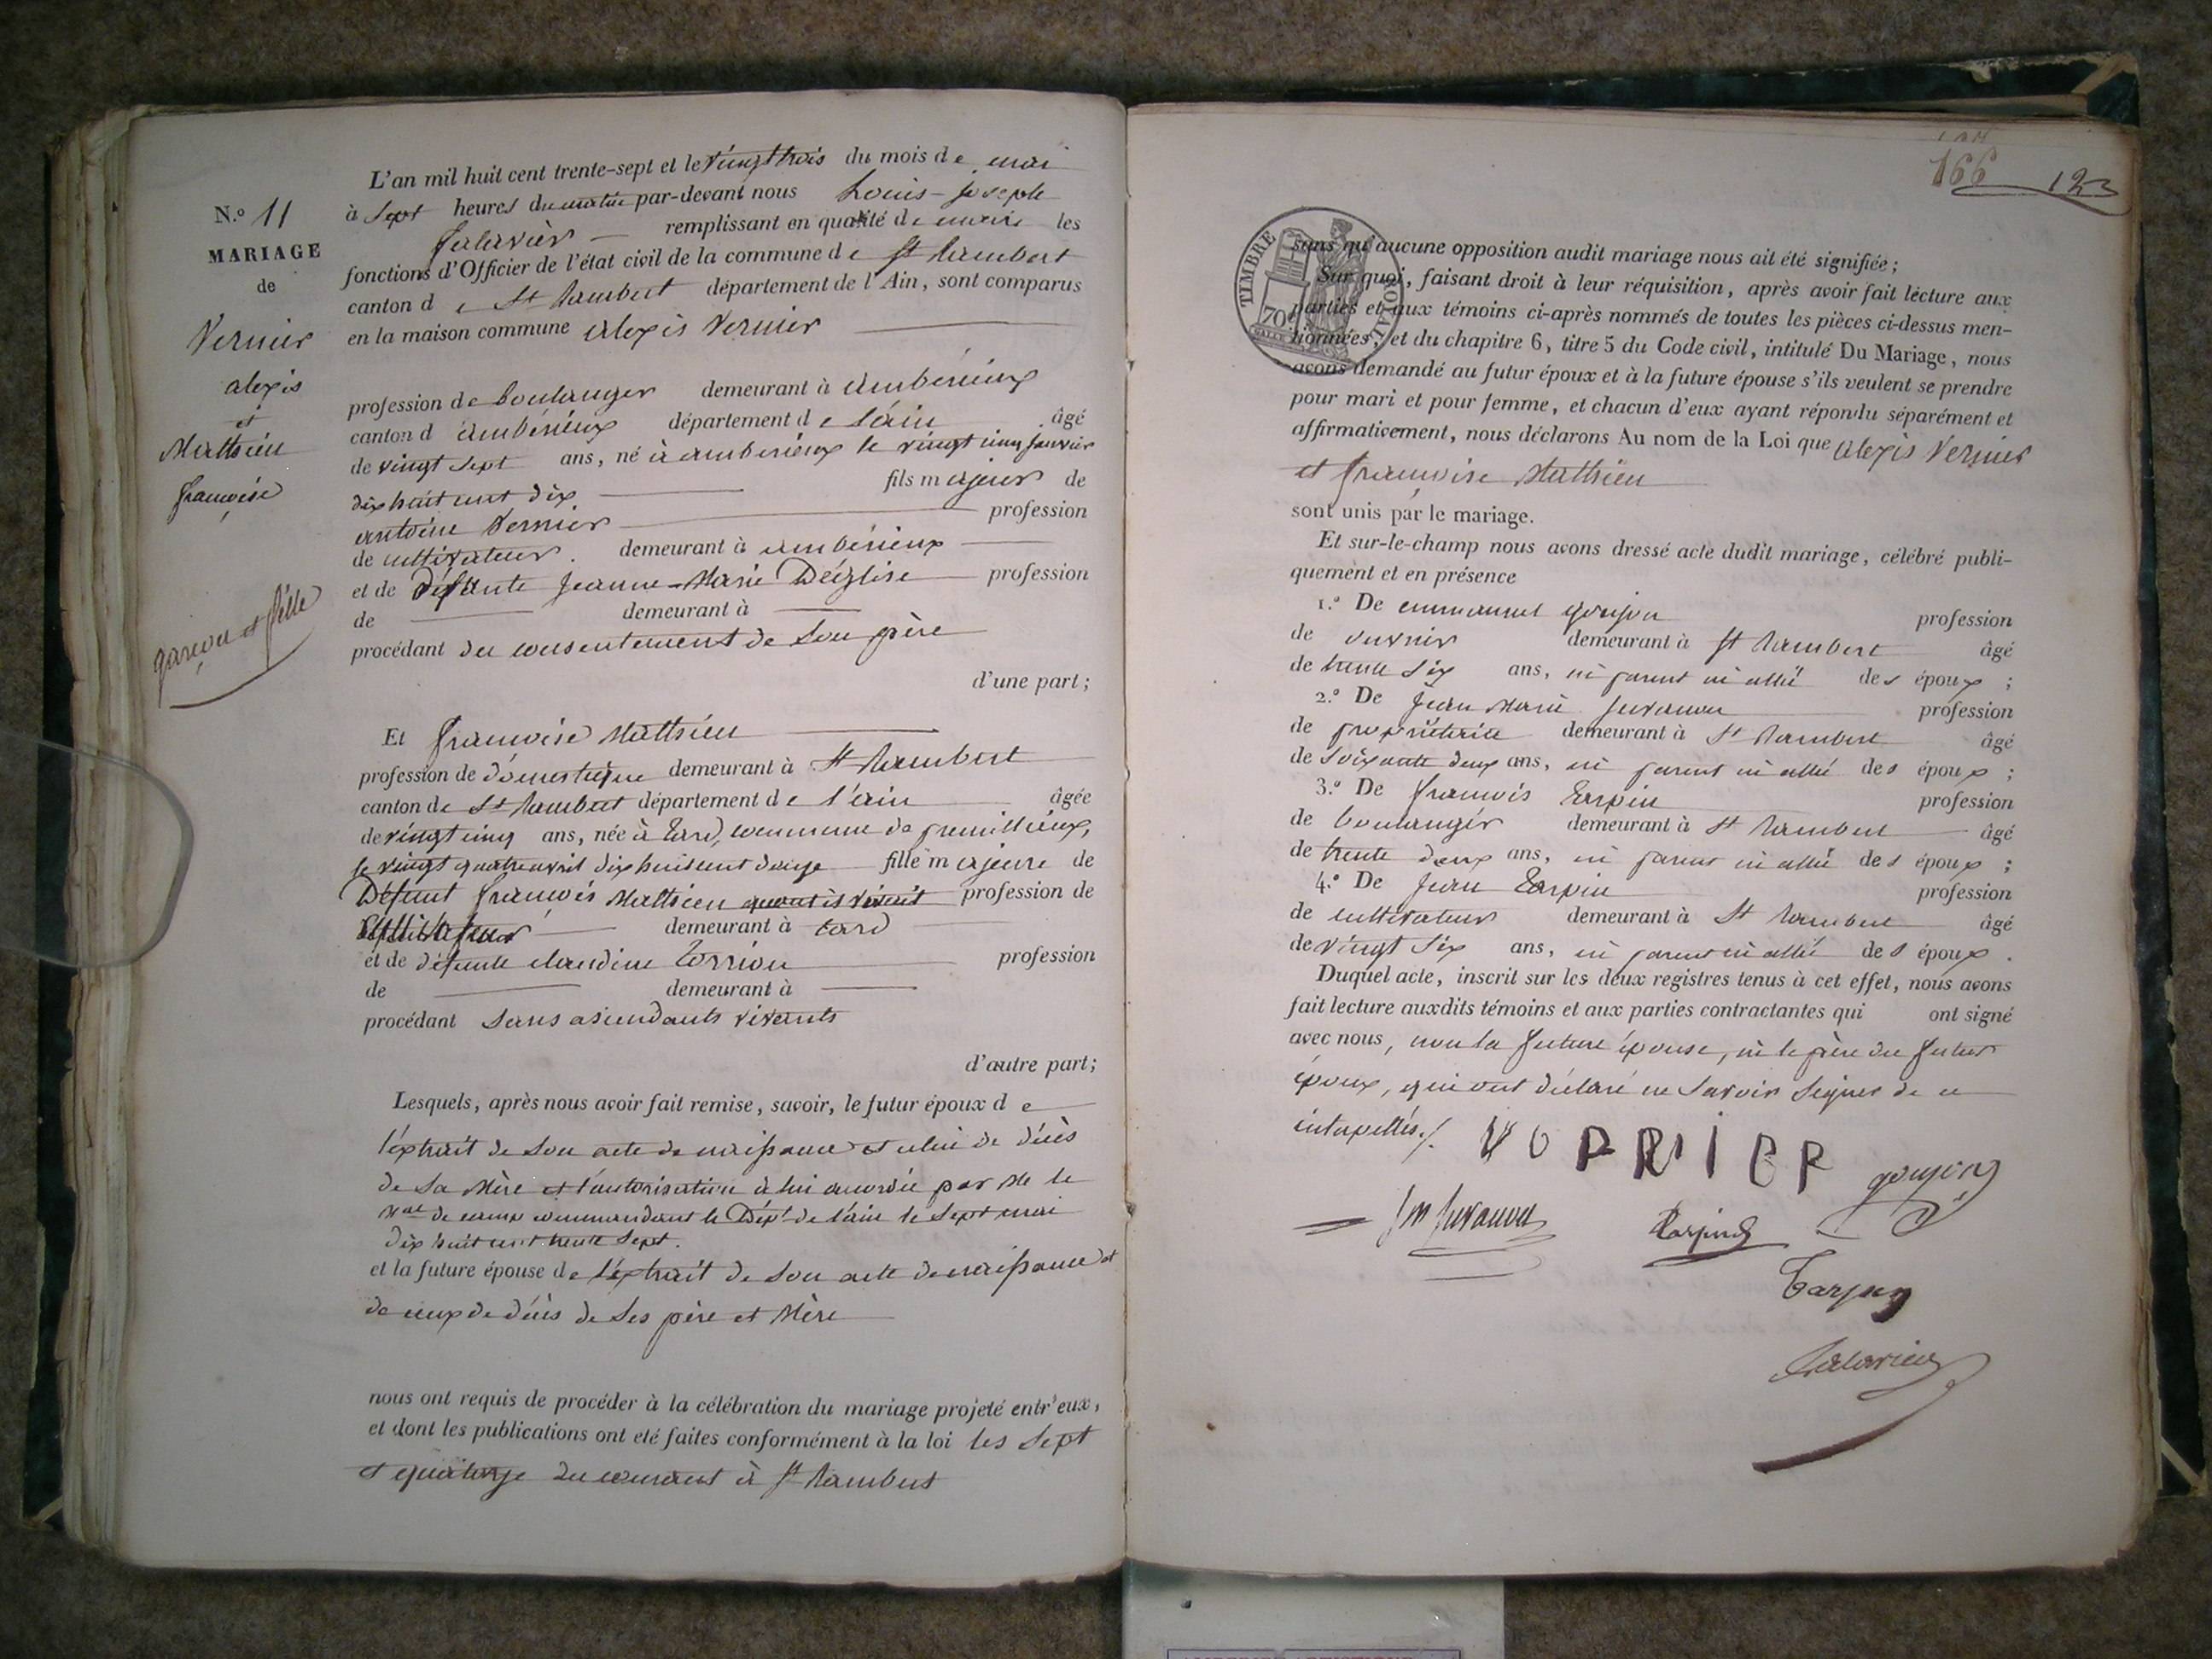 N.º 11
MARIAGE
de
Vernier
alexis
et
Mathieu
françoise
garçon et fille
L'an mil huit cent trente-sept et le vingt trois du mois de mai
à sept heures du matin par-devant nous Louis-joseph
falavier remplissant en qualité de maire les
fonctions d'Officier de l'état civil de la commune de St Rambert
canton de St Rambert département de l'Ain, sont comparus
en la maison commune alexis Vernier
profession de boulanger demeurant à ambérieux
canton d'ambérieux département de l'ain âgé
de vingt sept ans, né à ambérieux le vingt cinq janvier
dix huit cent dix fils majeur de
antoine Vernier profession
de cultivateur. demeurant à ambérieux
et de défunte jeanne-Marie Déglise profession
de demeurant à
procédant du consentement de son père
d'une part;
Et françoise Mathieu
profession de domestique demeurant à St Rambert
canton de St Rambert département de l'ain âgée
de vingt cinq ans, née à Tard, commune de premillieux,
le vingt quatre avril dix huit cent douze fille majeure de
Défunt françois Mathieu quand il vivait profession de
cultivateur demeurant à tard
et de défunte claudine Torrion profession
de demeurant à
procédant sans asendants vivants
d'autre part;
Lesquels, après nous avoir fait remise, savoir, le futur époux de
l'extrait de son acte de naissance et celui de décès
de sa Mère et l'autorisation à lui accordée par Mr le
Mal de camp commandant le Dépt de l'ain le sept mai
dix huit cent trente sept.
et la future épouse de l'extrait de son acte de naissance et
de ceux de décès de ses père et Mère
nous ont requis de procéder à la célébration du mariage projeté entr'eux,
et dont les publications ont eté faites conformément à la loi les sept
et quatorze du courant à St Rambert
166
123
TIMBRE ROYAL
70c
sans qu'aucune opposition audit mariage nous ait été signifiée;
Sur quoi, faisant droit à leur réquisition, après avoir fait lecture aux
parties et aux témoins ci-après nommés de toutes les pièces ci-dessus men-
tionnées, et du chapitre 6, titre 5 du Code civil, intitulé Du Mariage, nous
avons demandé au futur époux et à la future épouse s'ils veulent se prendre
pour mari et pour femme, et chacun d'eux ayant répondu séparément et
affirmativement, nous déclarons Au nom de la Loi que alexis Vernier
et françoise Mathieu
sont unis par le mariage.
Et sur-le-champ nous avons dressé acte dudit mariage, célébré publi-
quement et en présence
1.º De emmanuel goujon profession
de demeurant à St Rambert âgé
de trente six ans, ni parent ni allié des époux;
2.º De jean Marie juvanon profession
de propriétaire demeurant à St Rambert âgé
de soixante deux ans, ni parent ni allié des époux;
3.º De françois Tarpin profession
de boulanger demeurant à St Rambert âgé
de trente deux ans, ni parent ni allié des époux;
4.º De jean Tarpin profession
de cultivateur demeurant à St Rambert âgé
de vingt six ans, ni parent ni allié des époux.
Duquel acte, inscrit sur les deux registres tenus à cet effet, nous avons
fait lecture auxdits témoins et aux parties contractantes qui ont signé
avec nous, non la future épouse, ni le père du futur
époux, qui ont déclaré ne savoir signer de ce
interpellés./.
goujon
jm juvanon
Tarpin
Tarpin
falavier